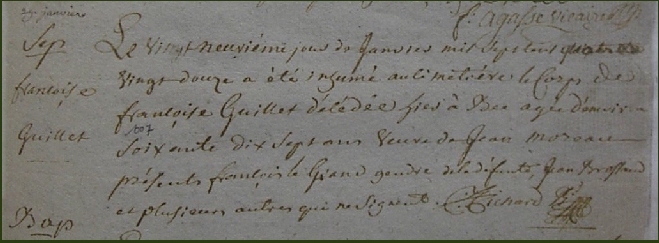 29 janvier
f. agasse vicaire
Sep
françoise
Guillet
Le vingt neuvième jour de Janvier mil sept cent quatre
vingt douze a été inhumé au cimetière le Corps de
françoise Guillet décédée hier à agée d'environ
soixante dix sept ans veuve de Jean moreau
présents françois le Grand gendre de la défunte, Jean Brossard
et plusieurs autres qui ne signent. Richard
Bap